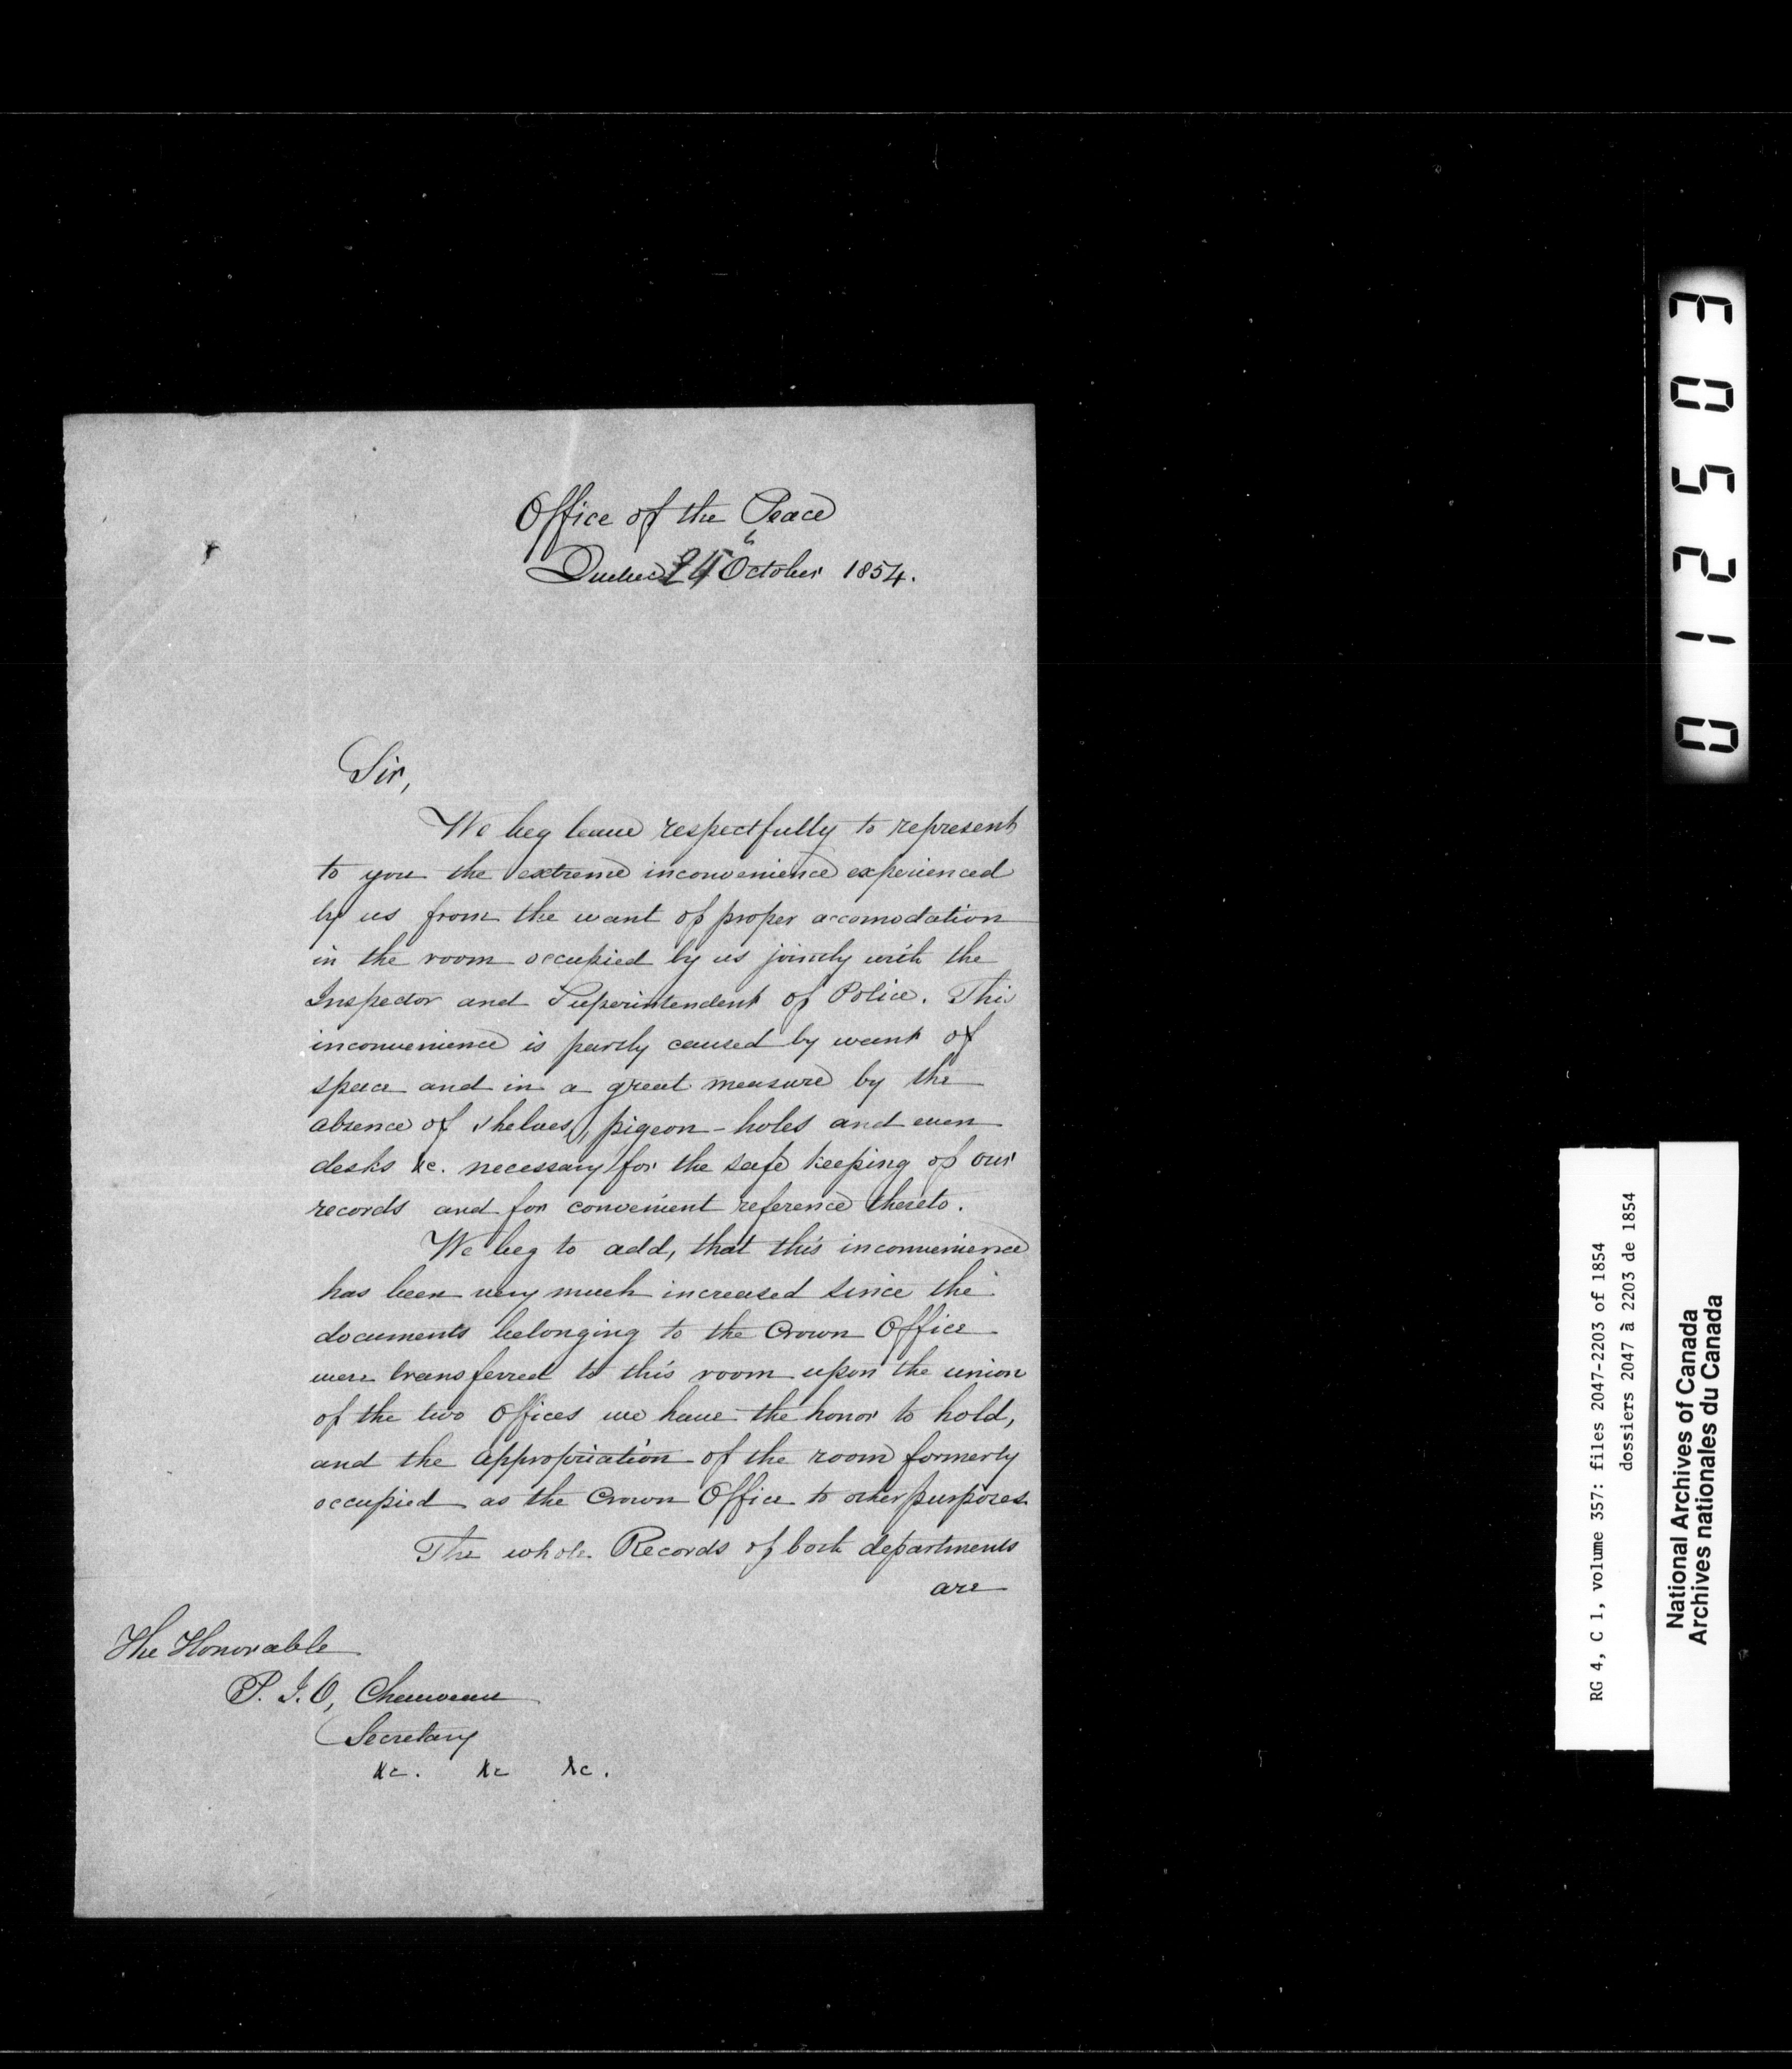 Office of the Peace
Quebec 25 October 1854.
Sir,
We beg leave respectfully to represent
to you the extreme inconvenience experienced
by us from the want of proper accomodation
in the room occupied by us jointly with the
Inspector and Superintendent of Police. This
inconvenience is partly caused by want of
space and in a great measure by the
absence of shelves, pigeon-holes and even
desks &c. necessary for the safe keeping of our
records and for convenient reference thereto.
We beg to add, that this inconvenience
has been very much increased since the
documents belonging to the Crown Office
were transferred to this room upon the union
of the two Offices we have the honor to hold,
and the appropriation of the room formerly
occupied as the Crown Office to other purposes.
The whole Records of both departments
are
The Honorable
P. J. O, Chauveau
Secretary
&c. &c &c.
E05210
RG 4, C 1, volume 357: files 2047-2203 of 1854
dossiers 2047 à 2203 de 1854
National Archives of Canada
Archives nationales du Canada